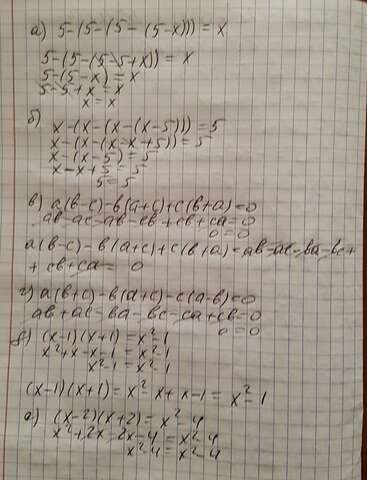 а) 5-(5-(5-(5-x))) = x
5-(5-(5-5+x)) = x
5-(5-x) = x
5-5+x = x
x = x
б)
x-(x-(x-(x-5))) = 5
x-(x-(x-x+5)) = 5
x-(x-5) = 5
x-x+5 = 5
5 = 5
в) a(b-c)-b(a+c)+c(b+a)=0
ab-ac-ab-cb+cb+ca=0
0=0
a(b-c)-b(a+c)+c(b+a)=ab-ac-ba-bc+
+cb+ca= 0
г) a(b+c)-b(a+c)-c(a-b)=0
ab+ac-ba-bc-ca+cb=0
0=0
д) (x-1)(x+1) = x²-1
x²+x-x-1 = x²-1
x²-1 = x²-1
(x-1)(x+1) = x²-x+x-1 = x²-1
е) (x-2)(x+2) = x²-4
x²+2x-2x-4 = x²-4
x²-4 = x²-4